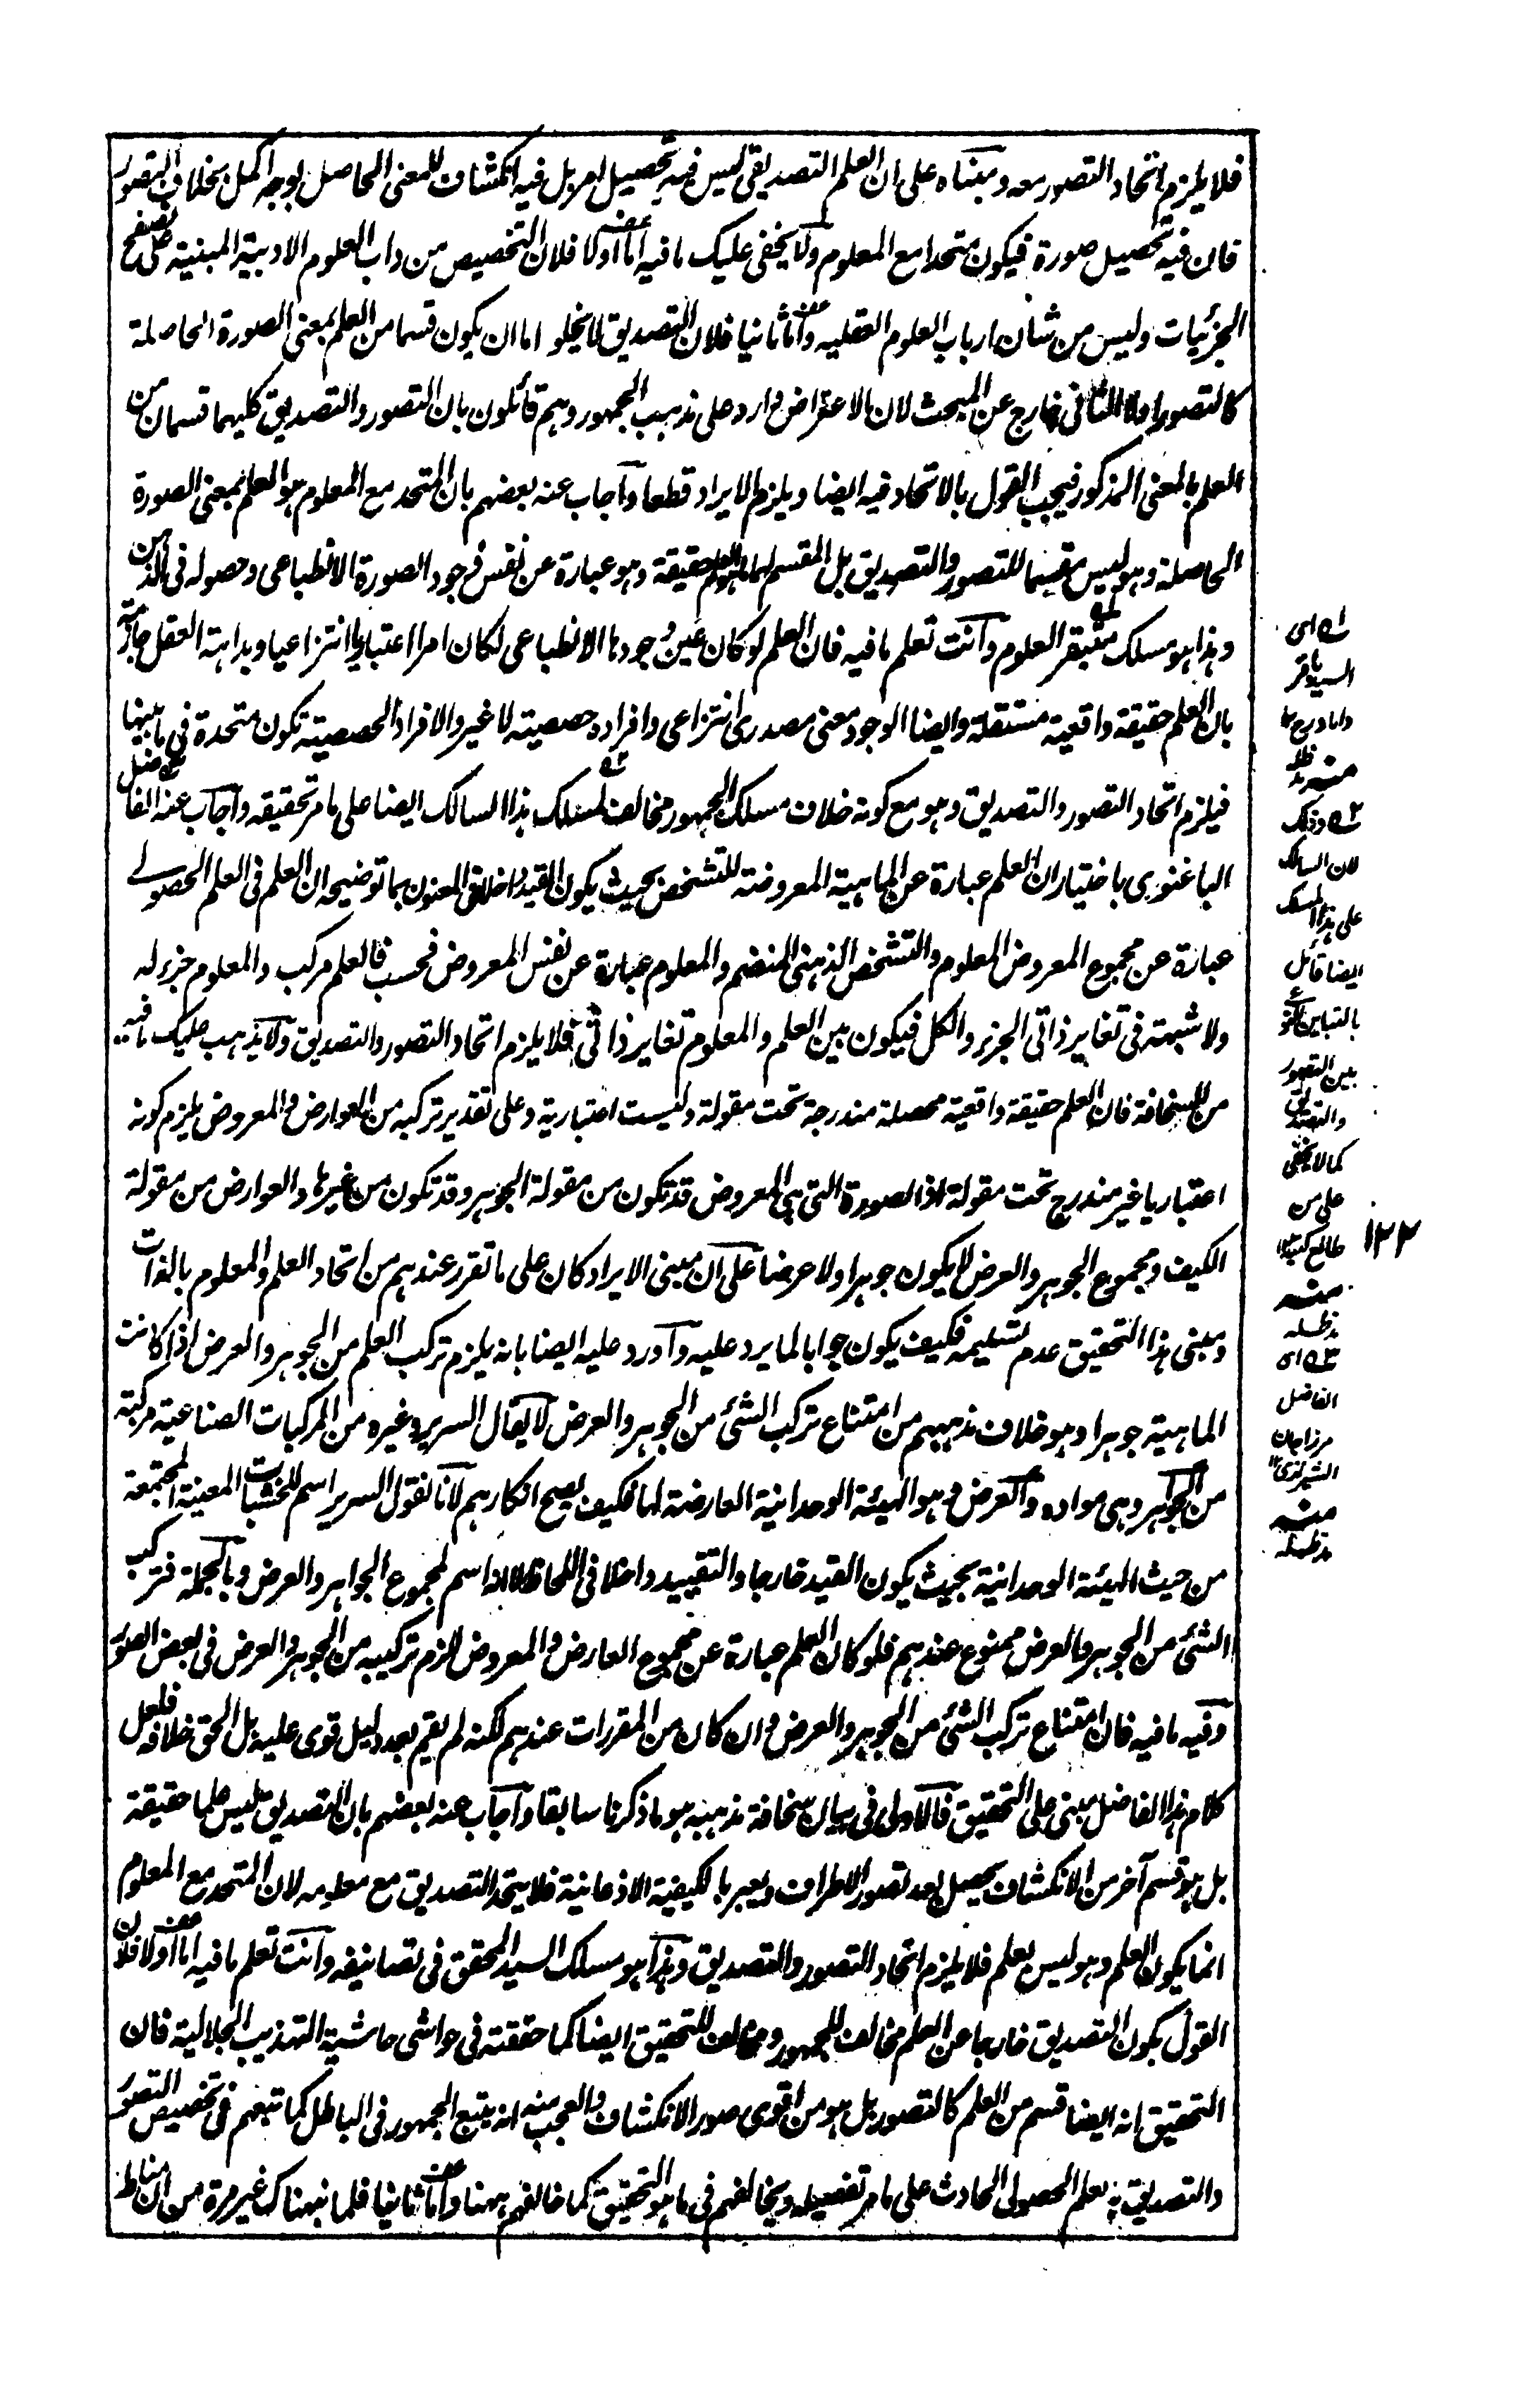 فلا يلزم اتحاد التصور معه ومبناه على ان العلم التصديقى ليس فيه تحصيل امر بل فيه انكشاف للمعنى الحاصل بوجه اكمل بخلاف التصور
فان فيه تحصيل صورة فيكون متحدا مع المعلوم ولا يخفى عليك ما فيه اما اولا فلان التخصيص من داب العلوم الادبية المبنية على تصفح
الجزئيات وليس من شان ارباب العلوم العقليه واما ثانيا فلان التصديق لا يخلو اما ان يكون قسما من العلم بمعنى الصورة الحاصلة
كالتصور او لا الثانى خارج عن المبحث لان الاعتراض وارد على مذهب الجمهور وهم قائلون بان التصور والتصديق كليهما قسمان من
العلم بالمعنى المذكور فيجب القول بالاتحاد فيه ايضا ويلزم الايراد قطعا واجاب عنه بعضهم بان المتحد مع المعلوم هو العلم بمعنى الصورة
الحاصلة وهو ليس مقسما للتصور والتصديق بل المقسم لهما العلم حقيقة وهو عبارة عن نفس وجود الصورة الانطباعى وحصوله فى الذهن
وهذا هو مسلك متبقر العلوم وانت تعلم ما فيه فان العلم لو كان عين وجودها الانطباعى لكان امرا اعتباريا انتزاعيا وبداهة العقل جازمة
بان العلم حقيقة واقعية مستقلة وايضا الوجود معنى مصدرى انتزاعى وافراده حصصية لا غير والافراد الحصصية تكون متحدة فى ما بينها
فيلزم اتحاد التصور والتصديق وهو مع كونه خلاف مسلك الجمهور مخالف لمسلك هذا السالك ايضا على ما مر تحقيقه واجاب عنه الفاضل
الباغنوى باختيار ان العلم عبارة عن الماهية المعروضة للتشخص بحيث يكون القيد داخلا فى المعنون بها توضيحه ان العلم فى العلم الحصولے
عبارة عن مجموع المعروض المعلوم والتشخص الذهنى المنضم والمعلوم عبارة عن نفس المعروض فحسب فالعلم مركب والمعلوم جزء له
ولا شبهة فى تغاير ذاتى الجزء والكل فيكون بين العلم والمعلوم تغاير ذاتى فلا يلزم اتحاد التصور والتصديق ولا يذهب عليك ما فيه
من السخافة فان العلم حقيقة واقعية محصلة مندرجة تحت مقولة وليست اعتبارية وعلى تقدير تركبه من العوارض والمعروض يلزم كونه
اعتباريا غير مندرج تحت مقولة اذ الصورة التى هى المعروض قد تكون من مقولة الجوهر وقد تكون من غيرها والعوارض من مقولة
الكيف ومجموع الجوهر والعرض لا يكون جوهرا ولا عرضا على ان مبنى الايراد كان على ما تقرر عندهم من اتحاد العلم والمعلوم بالذات
ومبنى هذا التحقيق عدم تسليمه فكيف يكون جوابا لما يرد عليه واورد عليه ايضا بانه يلزم تركب العلم من الجوهر والعرض اذا كانت
الماهية جوهرا وهو خلاف مذهبهم من امتناع تركب الشئ من الجوهر والعرض لا يقال السرير وغيره من المركبات الصناعية مركبة
من الجواهر وهى مواده والعرض وهو الهيئة الوحدانية العارضة لها فكيف يصح انكارهم لانا نقول السرير اسم للخشبات المعينة المجتمعة
من حيث الهيئة الوحدانية بحيث يكون القيد خارجا والتقييد داخلا فى اللحاظ لا انه اسم لمجموع الجواهر والعرض وبالجملة فتركب
الشئ من الجوهر والعرض ممنوع عندهم فلو كان العلم عبارة عن مجموع العارض والمعروض لزم تركبه من الجوهر والعرض فى بعض الصور
وفيه ما فيه فان امتناع تركب الشئ من الجوهر والعرض وان كان من المقررات عندهم لكنه لم يقم بعد دليل قوى عليه بل الحق خلافه فلعل
كلام هذا الفاضل مبنى على التحقيق فالاولى فى بيان سخافة مذهبه هو ما ذكرنا سابقا واجاب عنه بعضهم بان التصديق ليس علما حقيقة
بل هو قسم آخر من الانكشاف يحصل بعد تصور الاطراف ويعبر بالكيفية الاذعانية فلا يتحد التصديق مع معلومه لان المتحد مع المعلوم
انما يكون العلم وهو ليس بعلم فلا يلزم اتحاد التصور والتصديق وهذا هو مسلك السيد المحقق فى تصانيفه وانت تعلم ما فيه اما اولا فلان
القول بكون التصديق خارجا عن العلم مخالف للجمهور ومخالف للتحقيق ايضا كما حققته فى حواشى حاشية التهذيب الجلالية فان
التحقيق انه ايضا قسم من العلم كالتصور بل هو من اقوى صور الانكشاف والعجب منه انه يتبع الجمهور فى الباطل كما تبعهم فى تخصيص التصور
والتصديق بعلم الحصولى الحادث على ما مر تفصيله ويخالفهم فى ما هو التحقيق كما خالفهم ههنا واما ثانيا فلما نبهناك غير مرة من ان مناط
لـه اى
السيد باقر
داماد رح ١٢
منه
مد ظله
لـه وذلك
لان السالك
على هذا المسلك
ايضا قائل
بالتباين النوعى
بين التصور
والتصديق
كما لا يخفى
على من
طالع كتبه ١٢
منه
مد ظله
٣ـه اى
الفاضل
مرزا جان
الشيرازى ١٢
منه
مد ظله
١٢٢